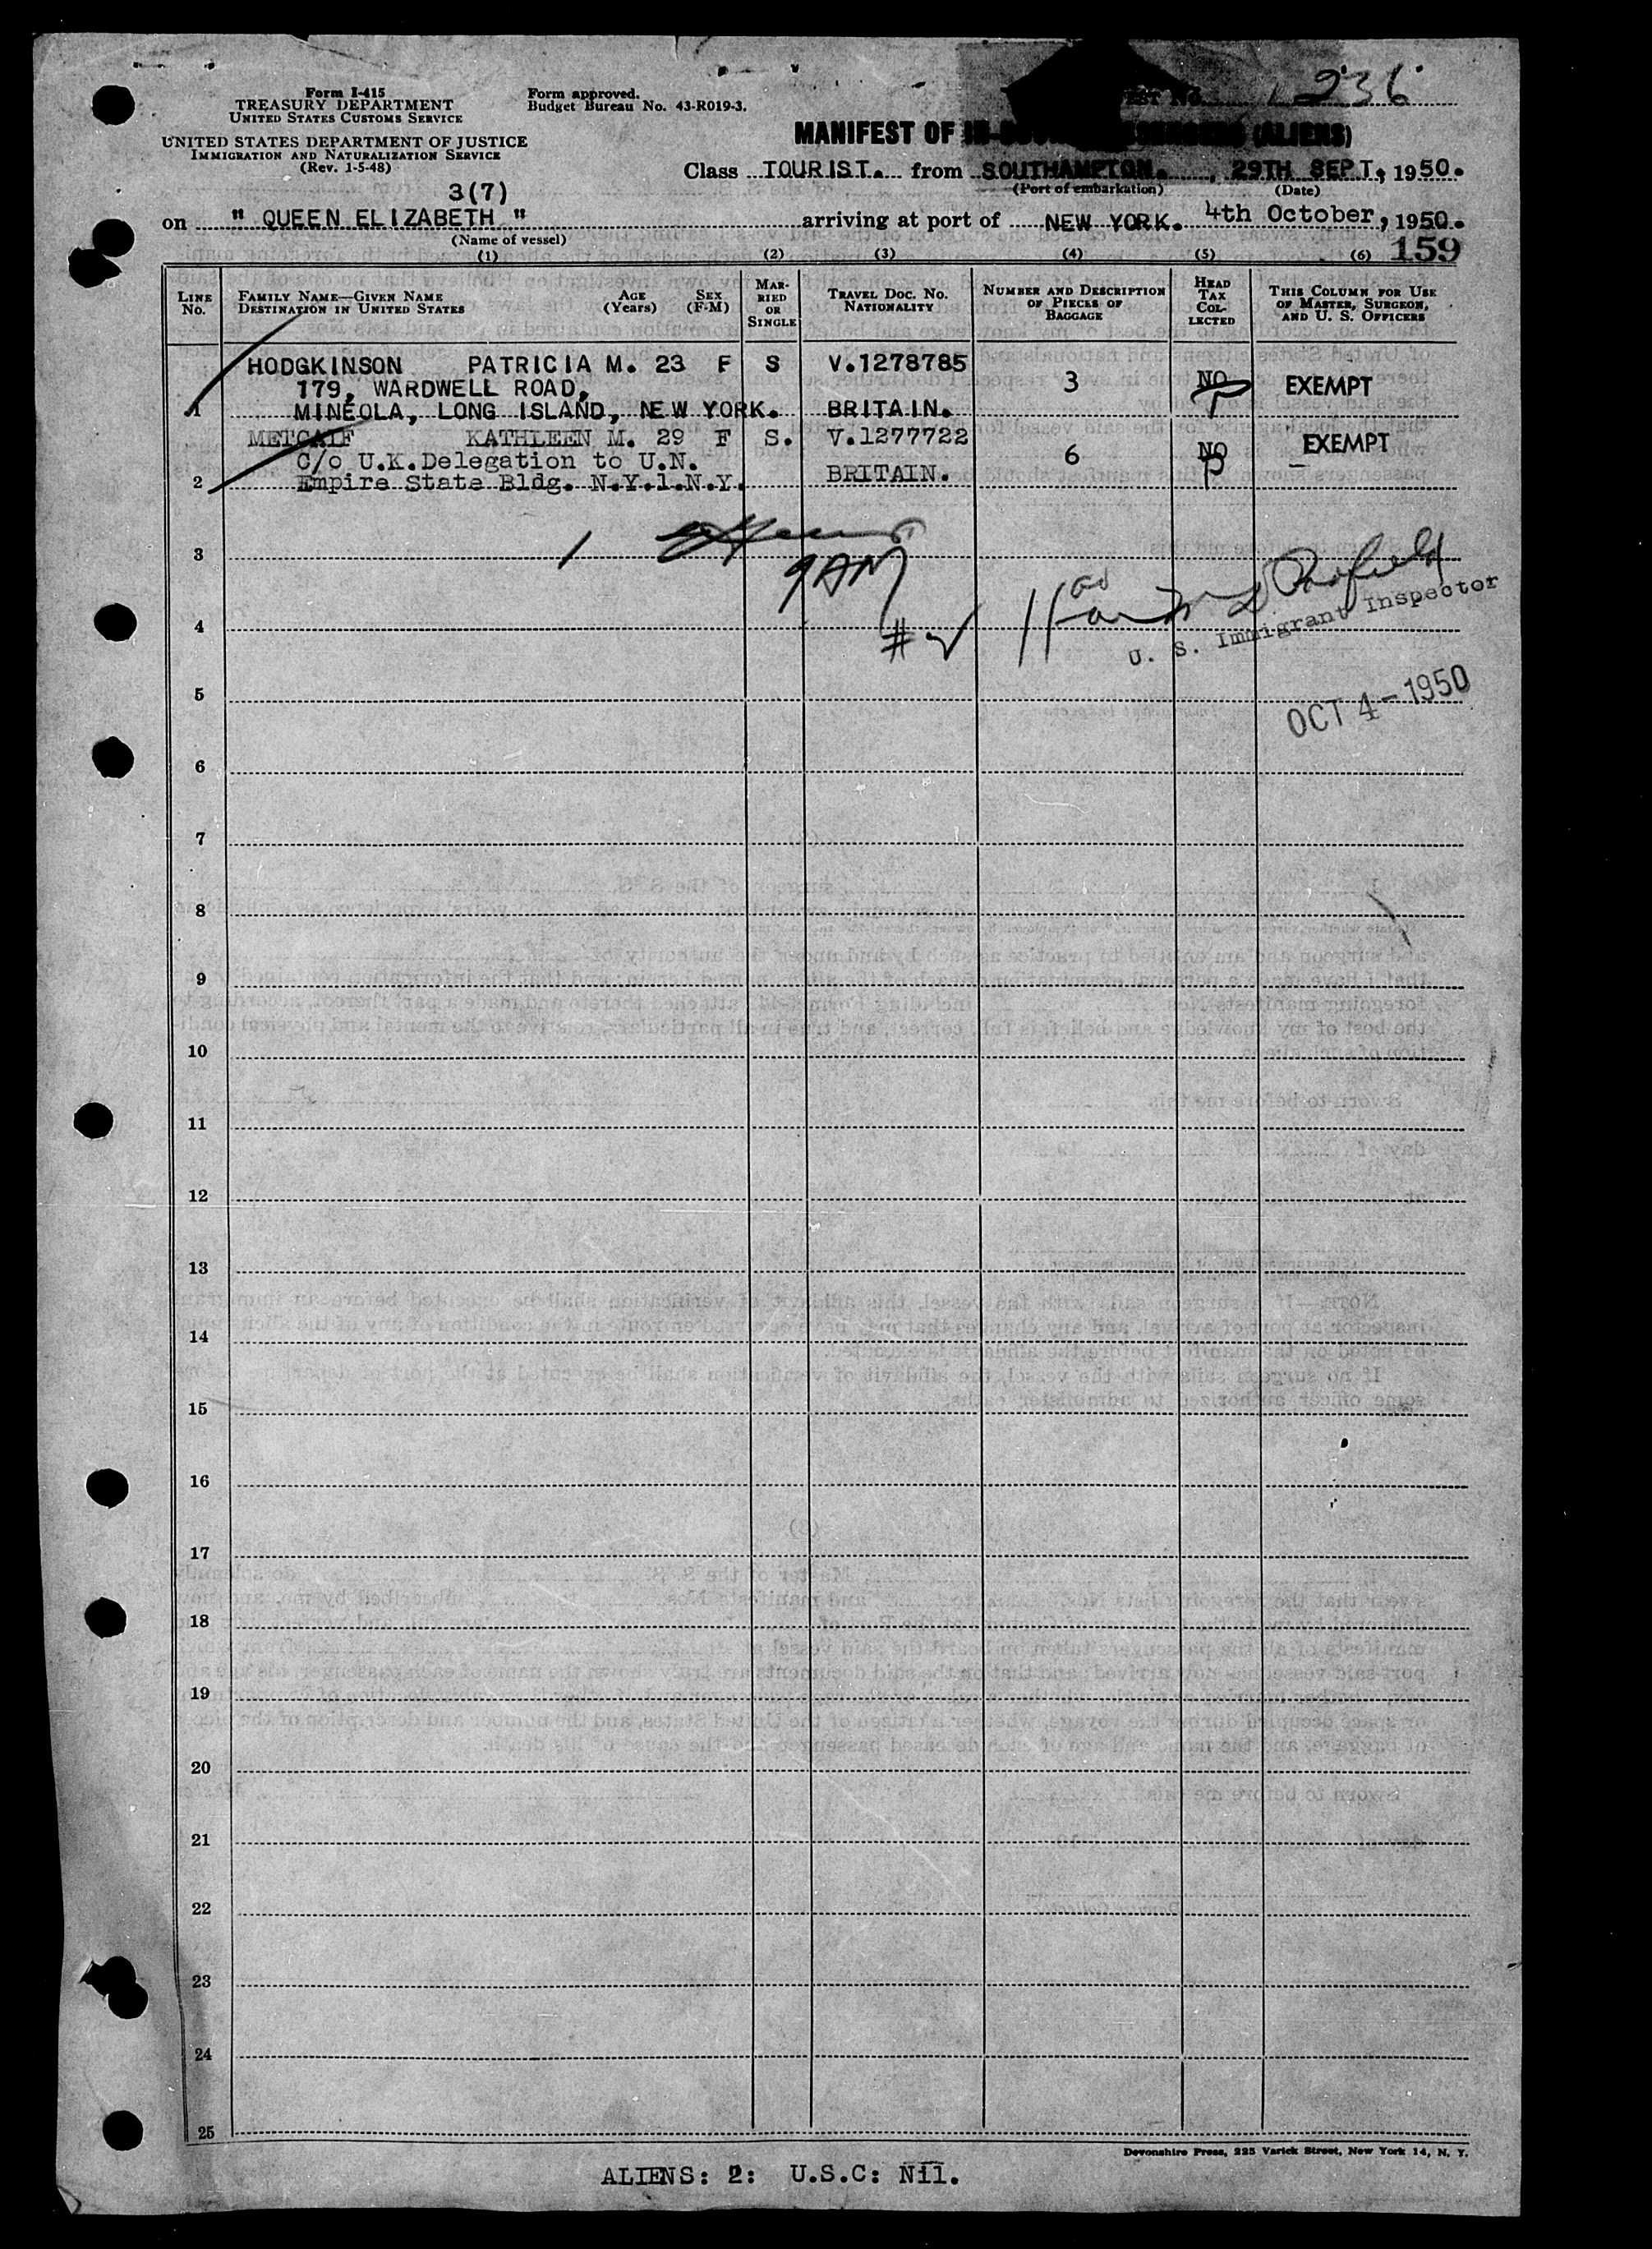 Form I-415
TREASURY DEPARTMENT
UNITED STATES CUSTOMS SERVICE
UNITED STATES DEPARTMENT OF JUSTICE
IMMIGRATION AND NATURALIZATION SERVICE
(Rev. 1-5-48)
Form approved.
Budget Bureau No. 43-R019-3.
No. 236
MANIFEST OF (ALIENS)
Class TOURIST. from SOUTHAMPTON. , 29TH SEPT, 1950.
(Port of embarkation) (Date)
3(7)
on " QUEEN ELIZABETH " arriving at port of NEW YORK. 4th October, 1950.
(Name of vessel)
159
(1) (2) (3) (4) (5) (6)
LINE No. FAMILY NAME—GIVEN NAME DESTINATION IN UNITED STATES AGE (Years) SEX (F-M) MARRIED OR SINGLE TRAVEL DOC. NO. NATIONALITY NUMBER AND DESCRIPTION OF PIECES OF BAGGAGE HEAD TAX COLLECTED THIS COLUMN FOR USE OF MASTER, SURGEON, AND U. S. OFFICERS
HODGKINSON PATRICIA M. 23 F S V.1278785
179, WARDWELL ROAD, 3 NO EXEMPT
1 MINEOLA, LONG ISLAND, NEW YORK. BRITAIN.
METCALF KATHLEEN M. 29 F S. V.1277722
C/o U.K.Delegation to U.N. 6 NO EXEMPT
2 Empire State Bldg. N.Y.1.N.Y. BRITAIN.
3
9AM
4 #2
U. S. Immigrant Inspector
5
OCT 4-1950
6
7
8
9
10
11
12
13
14
15
16
17
18
19
20
21
22
23
24
25
Devonshire Press, 225 Varick Street, New York 14, N. Y.
ALIENS: 2: U.S.C: Nil.